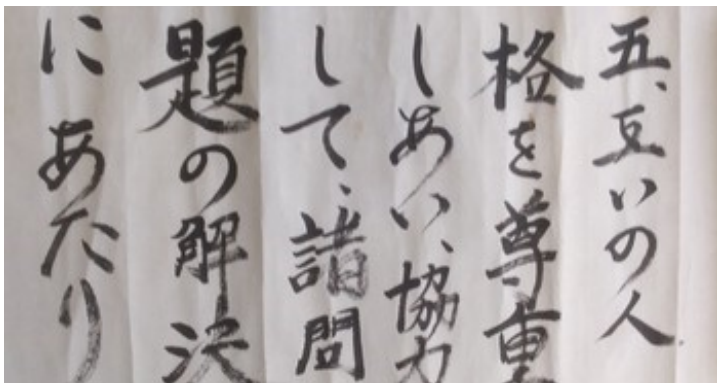 五、互いの人
格を尊重
しあい、協力
して、諸問
題の解決
にあたり